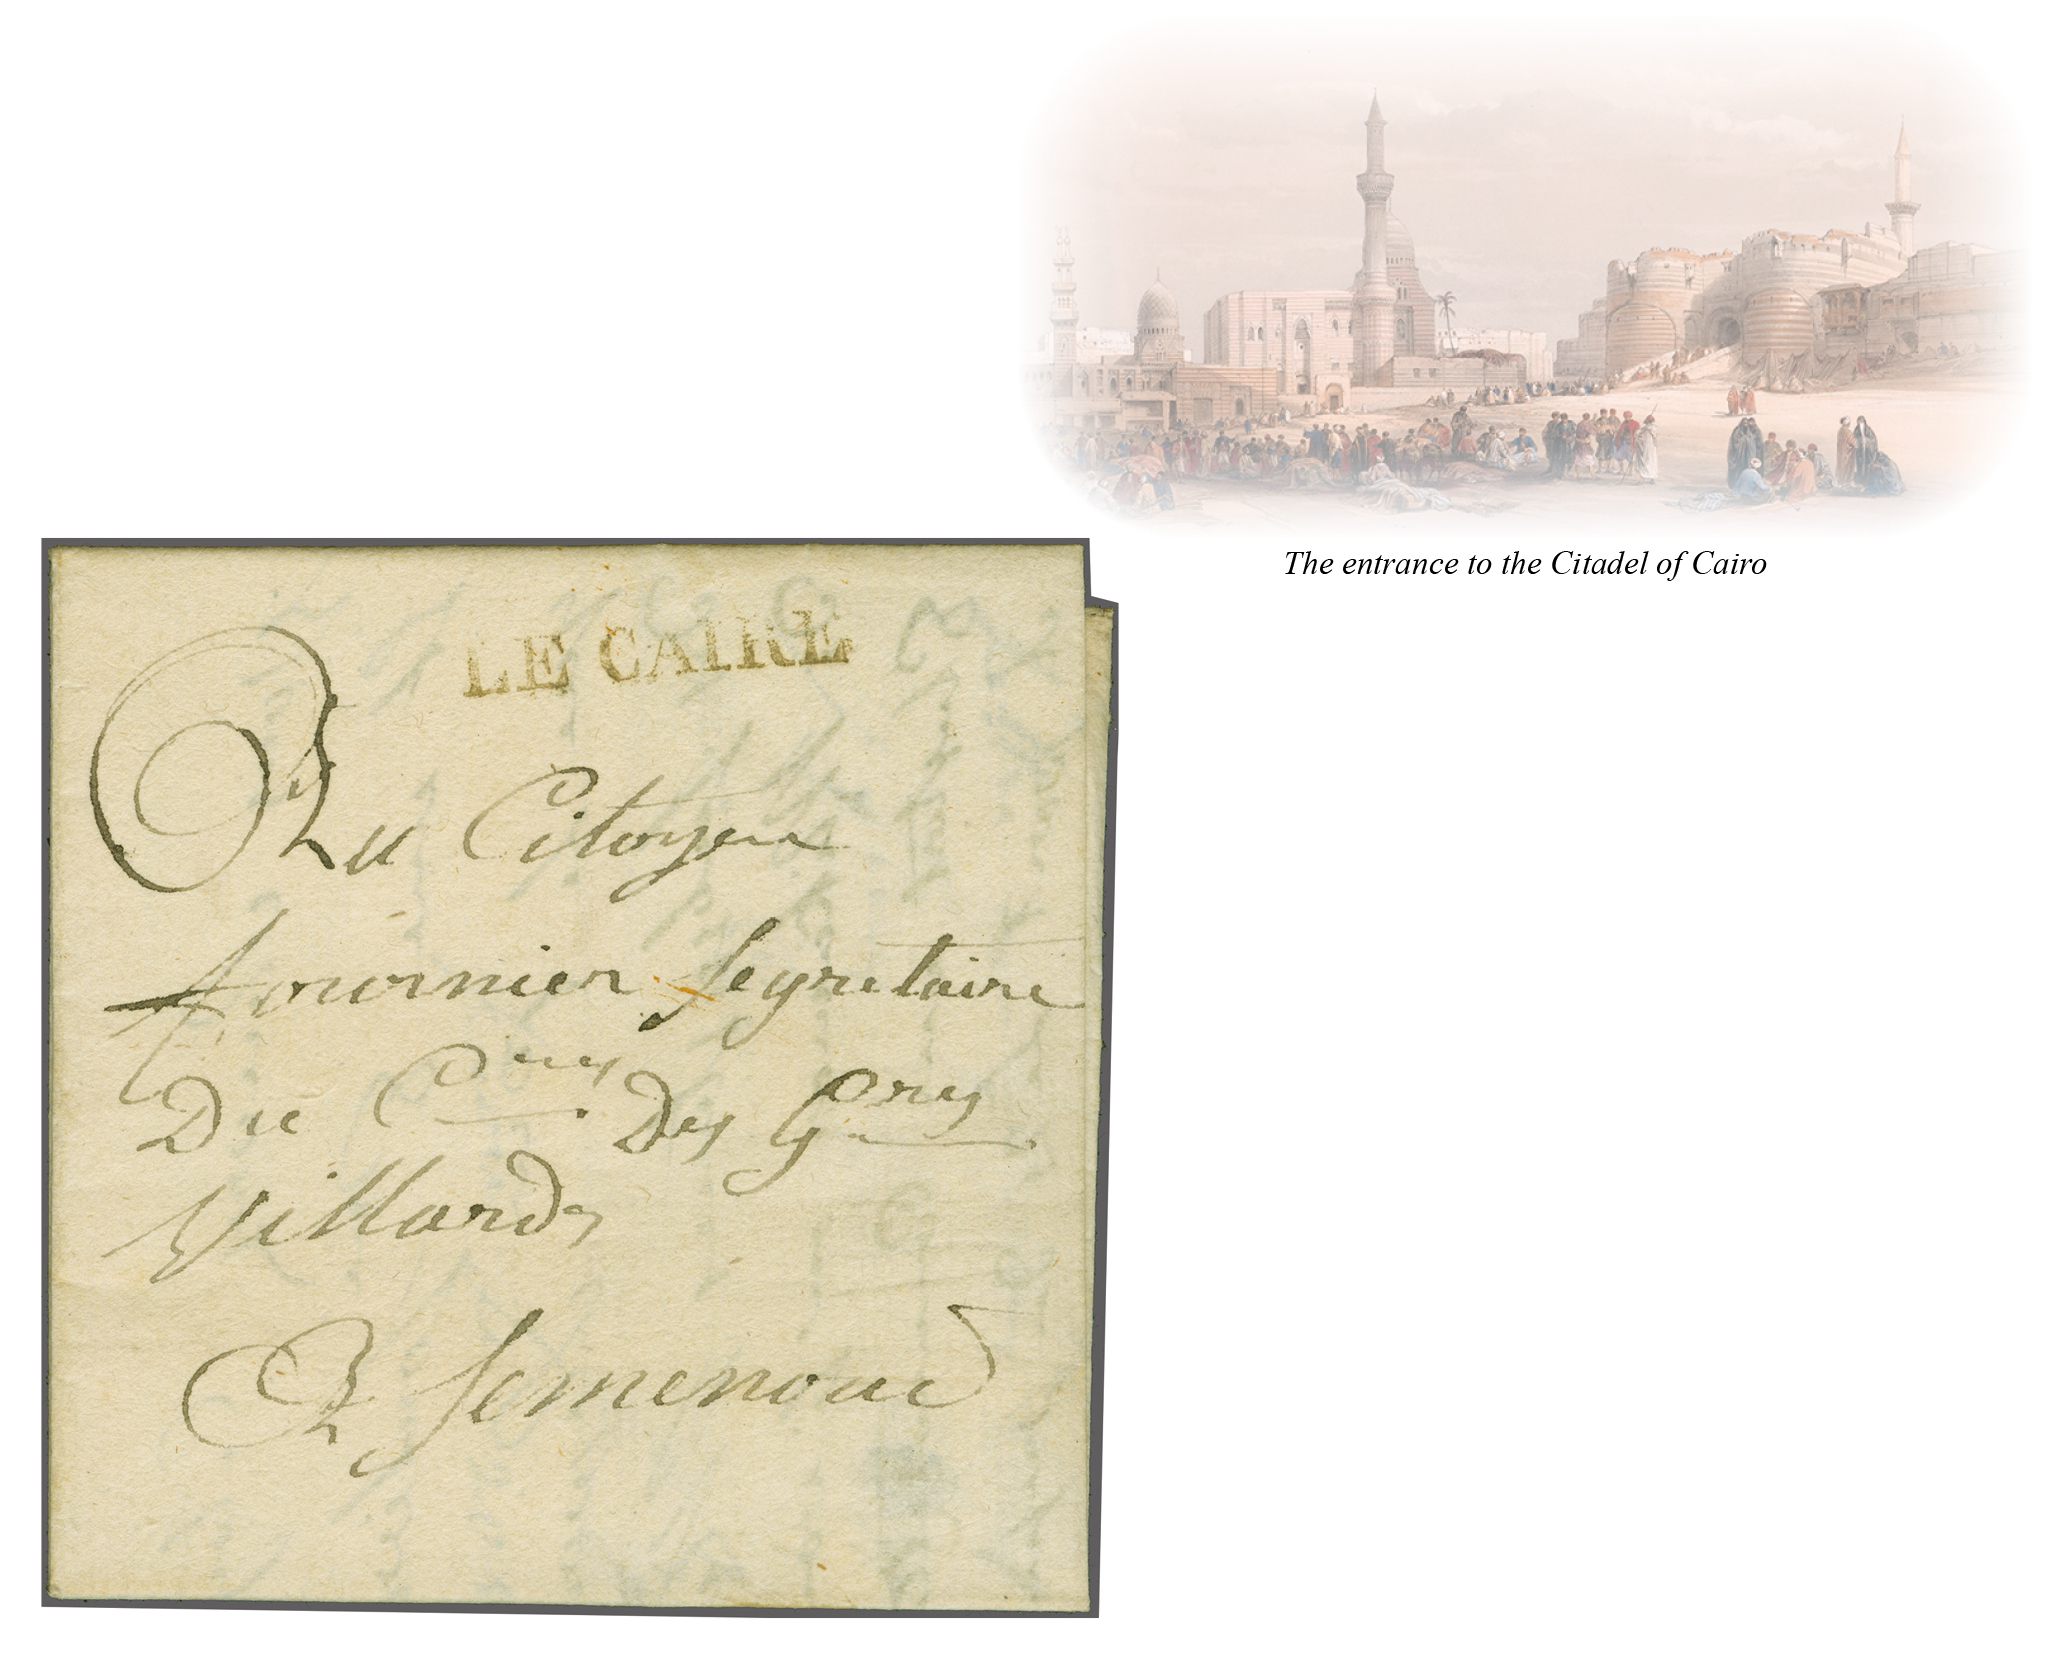 The entrance to the Citadel of Cairo
LE CAIRE
Au Citoyen
fournier segretaire
Du Cres Des Gres
Villard
A Semenoud